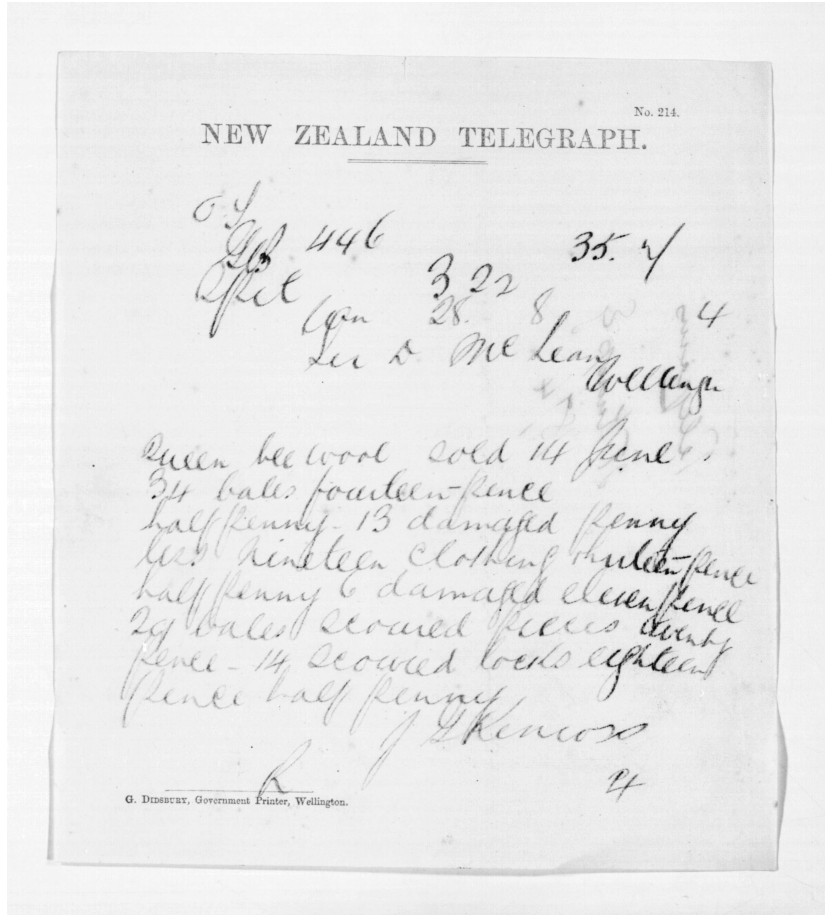 No. 214.
NEW ZEALAND TELEGRAPH.
446 35.
322
28. 8 4
Sir D. McLean
Wellingn
Queen bee wool sold 14 June
34 bales fourteen-pence
halfpenny - 13 damaged penny
less nineteen clothing thirteen-pence
halfpenny 6 damaged elevenpence
29 bales scoured pieces twenty
pence - 14 scoured locks eighteen
pence half penny
J G Kinross
R 4
G. DIDSBURY, Government Printer, Wellington.